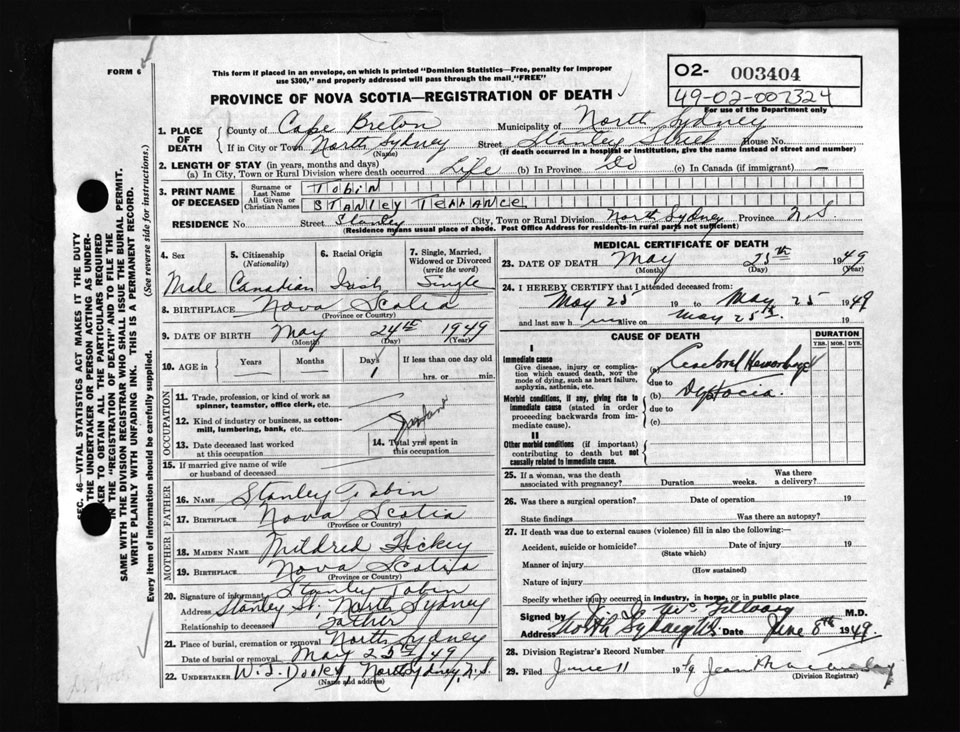 FORM 6
This form if placed in an envelope, on which is printed "Dominion Statistics—Free, penalty for improper
use $300," and properly addressed will pass through the mail "FREE"
02- 003404
49-02-007324
For use of the Department only
PROVINCE OF NOVA SCOTIA—REGISTRATION OF DEATH
1. PLACE OF DEATH
County of Cape Breton Municipality of North Sydney
If in City or Town North Sydney (Name) Street Stanley Street House No.
(If death occurred in a hospital or institution, give the name instead of street and number)
2. LENGTH OF STAY (in years, months and days)
(a) In City, Town or Rural Division where death occurred Life (b) In Province Do (c) In Canada (if immigrant) —
3. PRINT NAME OF DECEASED
Surname or Last Name TOBIN
All Given or Christian Names STANLEY
RESIDENCE No. Street Stanley City, Town or Rural Division North Sydney Province N.S.
(Residence means usual place of abode. Post Office Address for residents in rural parts not sufficient)
4. Sex
5. Citizenship (Nationality)
6. Racial Origin
7. Single, Married, Widowed or Divorced (write the word)
Male Canadian Irish Single
8. BIRTHPLACE Nova Scotia
(Province or Country)
9. DATE OF BIRTH May 24th 1949
(Month) (Day) (Year)
10. AGE in Years Months Days If less than one day old
1 hrs. or min.
OCCUPATION
11. Trade, profession, or kind of work as spinner, teamster, office clerk, etc.
12. Kind of industry or business, as cotton-mill, lumbering, bank, etc.
13. Date deceased last worked at this occupation
14. Total yrs. spent in this occupation
15. If married give name of wife or husband of deceased
FATHER
16. NAME Stanley Tobin
17. BIRTHPLACE Nova Scotia
(Province or Country)
MOTHER
18. MAIDEN NAME Mildred Hickey
19. BIRTHPLACE Nova Scotia
(Province or Country)
20. Signature of informant Stanley Tobin
Address Stanley St. North Sydney
Relationship to deceased Father
21. Place of burial, cremation or removal North Sydney
Date of burial or removal May 25th 49
22. UNDERTAKER W.J. Dooley, North Sydney, N.S.
(Name and address)
MEDICAL CERTIFICATE OF DEATH
23. DATE OF DEATH May 25th 1949
(Month) (Day) (Year)
24. I HEREBY CERTIFY that I attended deceased from:
May 25 19 to May 25 1949
and last saw h alive on May 25th 19
CAUSE OF DEATH
DURATION
YRS. MOS. DYS.
I
Immediate cause
Give disease, injury or complication which caused death, NOT the mode of dying, such as heart failure, asphyxia, asthenia, etc.
(a) Cerebral Hemorrhage
due to
Morbid conditions, if any, giving rise to immediate cause (stated in order proceeding backwards from immediate cause).
(b) Dystocia.
due to
(c)
II
Other morbid conditions (if important) contributing to death but not causally related to immediate cause.
25. If a woman, was the death associated with pregnancy? Duration weeks. Was there a delivery?
26. Was there a surgical operation? Date of operation 19
State findings Was there an autopsy?
27. If death was due to external causes (violence) fill in also the following:—
Accident, suicide or homicide? Date of injury 19
(State which)
Manner of injury
(How sustained)
Nature of injury
Specify whether injury occurred in industry, in home, or in public place
Signed by M.D.
Address North Sydney NS Date June 8th 1949.
28. Division Registrar's Record Number
29. Filed June 11 1949. Jean
(Division Registrar)
SEC. 46—VITAL STATISTICS ACT MAKES IT THE DUTY
OF THE UNDERTAKER OR PERSON ACTING AS UNDER-
TAKER TO OBTAIN ALL THE PARTICULARS REQUIRED
IN THE "REGISTRATION OF DEATH" AND TO FILE THE
SAME WITH THE DIVISION REGISTRAR WHO SHALL ISSUE THE BURIAL PERMIT.
WRITE PLAINLY WITH UNFADING INK. THIS IS A PERMANENT RECORD.
Every item of information should be carefully supplied. (See reverse side for instructions.)